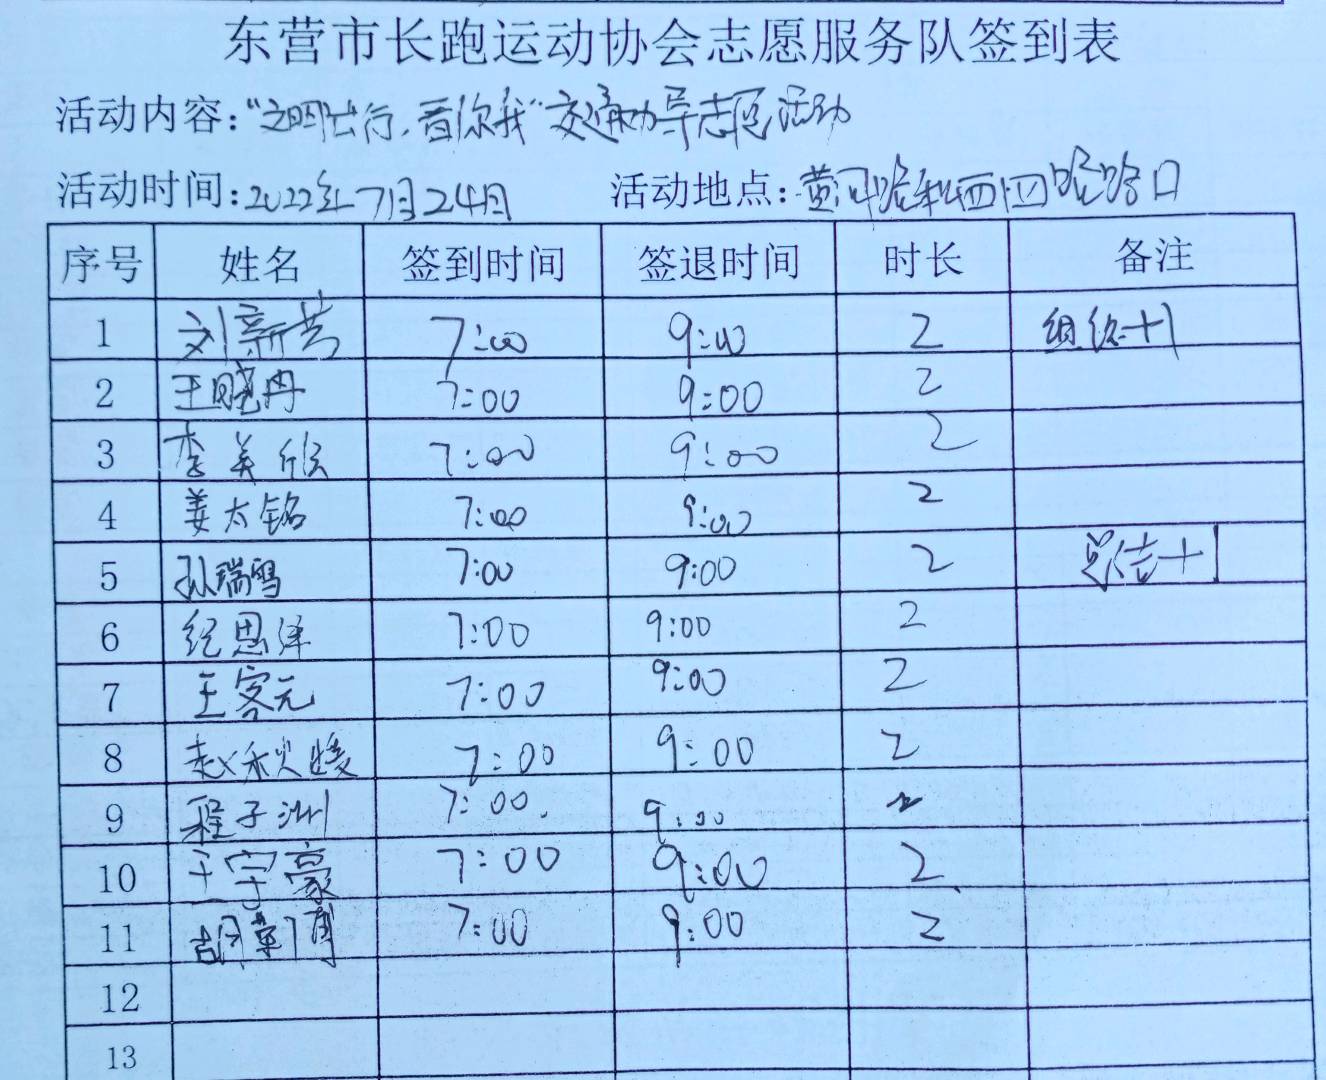 东营市长跑运动协会志愿服务队签到表
活动内容:"文明出行,看你我"交通劝导志愿活动
活动时间:2022年7月24日 活动地点:黄河路和西四路路口
序号 姓名 签到时间 签退时间 时长 备注
1 刘新芳 7:00 9:00 2 组织+1
2 王晓冉 7:00 9:00 2
3 李美欣 7:00 9:00 2
4 姜太铭 7:00 9:00 2
5 孙瑞雪 7:00 9:00 2 总结+1
6 纪思泽 7:00 9:00 2
7 王客元 7:00 9:00 2
8 赵秋媛 7:00 9:00 2
9 程子洲 7:00 9:00 2
10 王宇豪 7:00 9:00 2
11 7:00 9:00 2
12
13